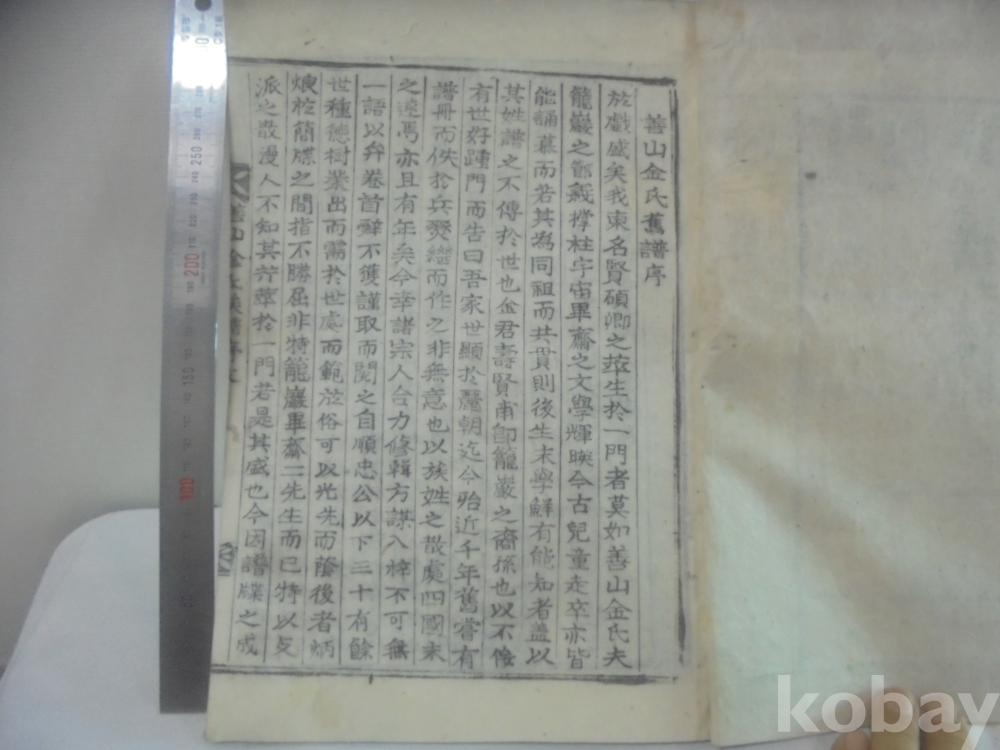 善山金氏舊譜序
於戲盛矣我東名賢碩卿之萃生於一門者莫如善山金氏夫
籠巖之節義撑柱宇宙畢齋之文學輝映今古兒童走卒亦皆
能誦慕而若其為同祖而共貫則後生末學鮮有能知者盖以
其姓譜之不傳於世也金君壽賢甫卽籠巖之裔孫也以不佞
有世好踵門而告曰吾家世顯於麗朝迄今殆近千年舊嘗有
譜冊而佚於兵燹繼而作之非無意也以族姓之散處四國未
之遑焉亦且有年矣今幸諸宗人合力修輯方謀入梓不可無
一語以弁卷首辭不獲謹取而閱之自順忠公以下三十有餘
世種德樹業出而需於世處而範於俗可以光先而蔭後者炳
煥於簡牒之間指不勝屈非特籠巖畢齋二先生而已特以支
派之散漫人不知其萃於一門若是其盛也今因譜牒之成
善山金氏族譜序文
kobay